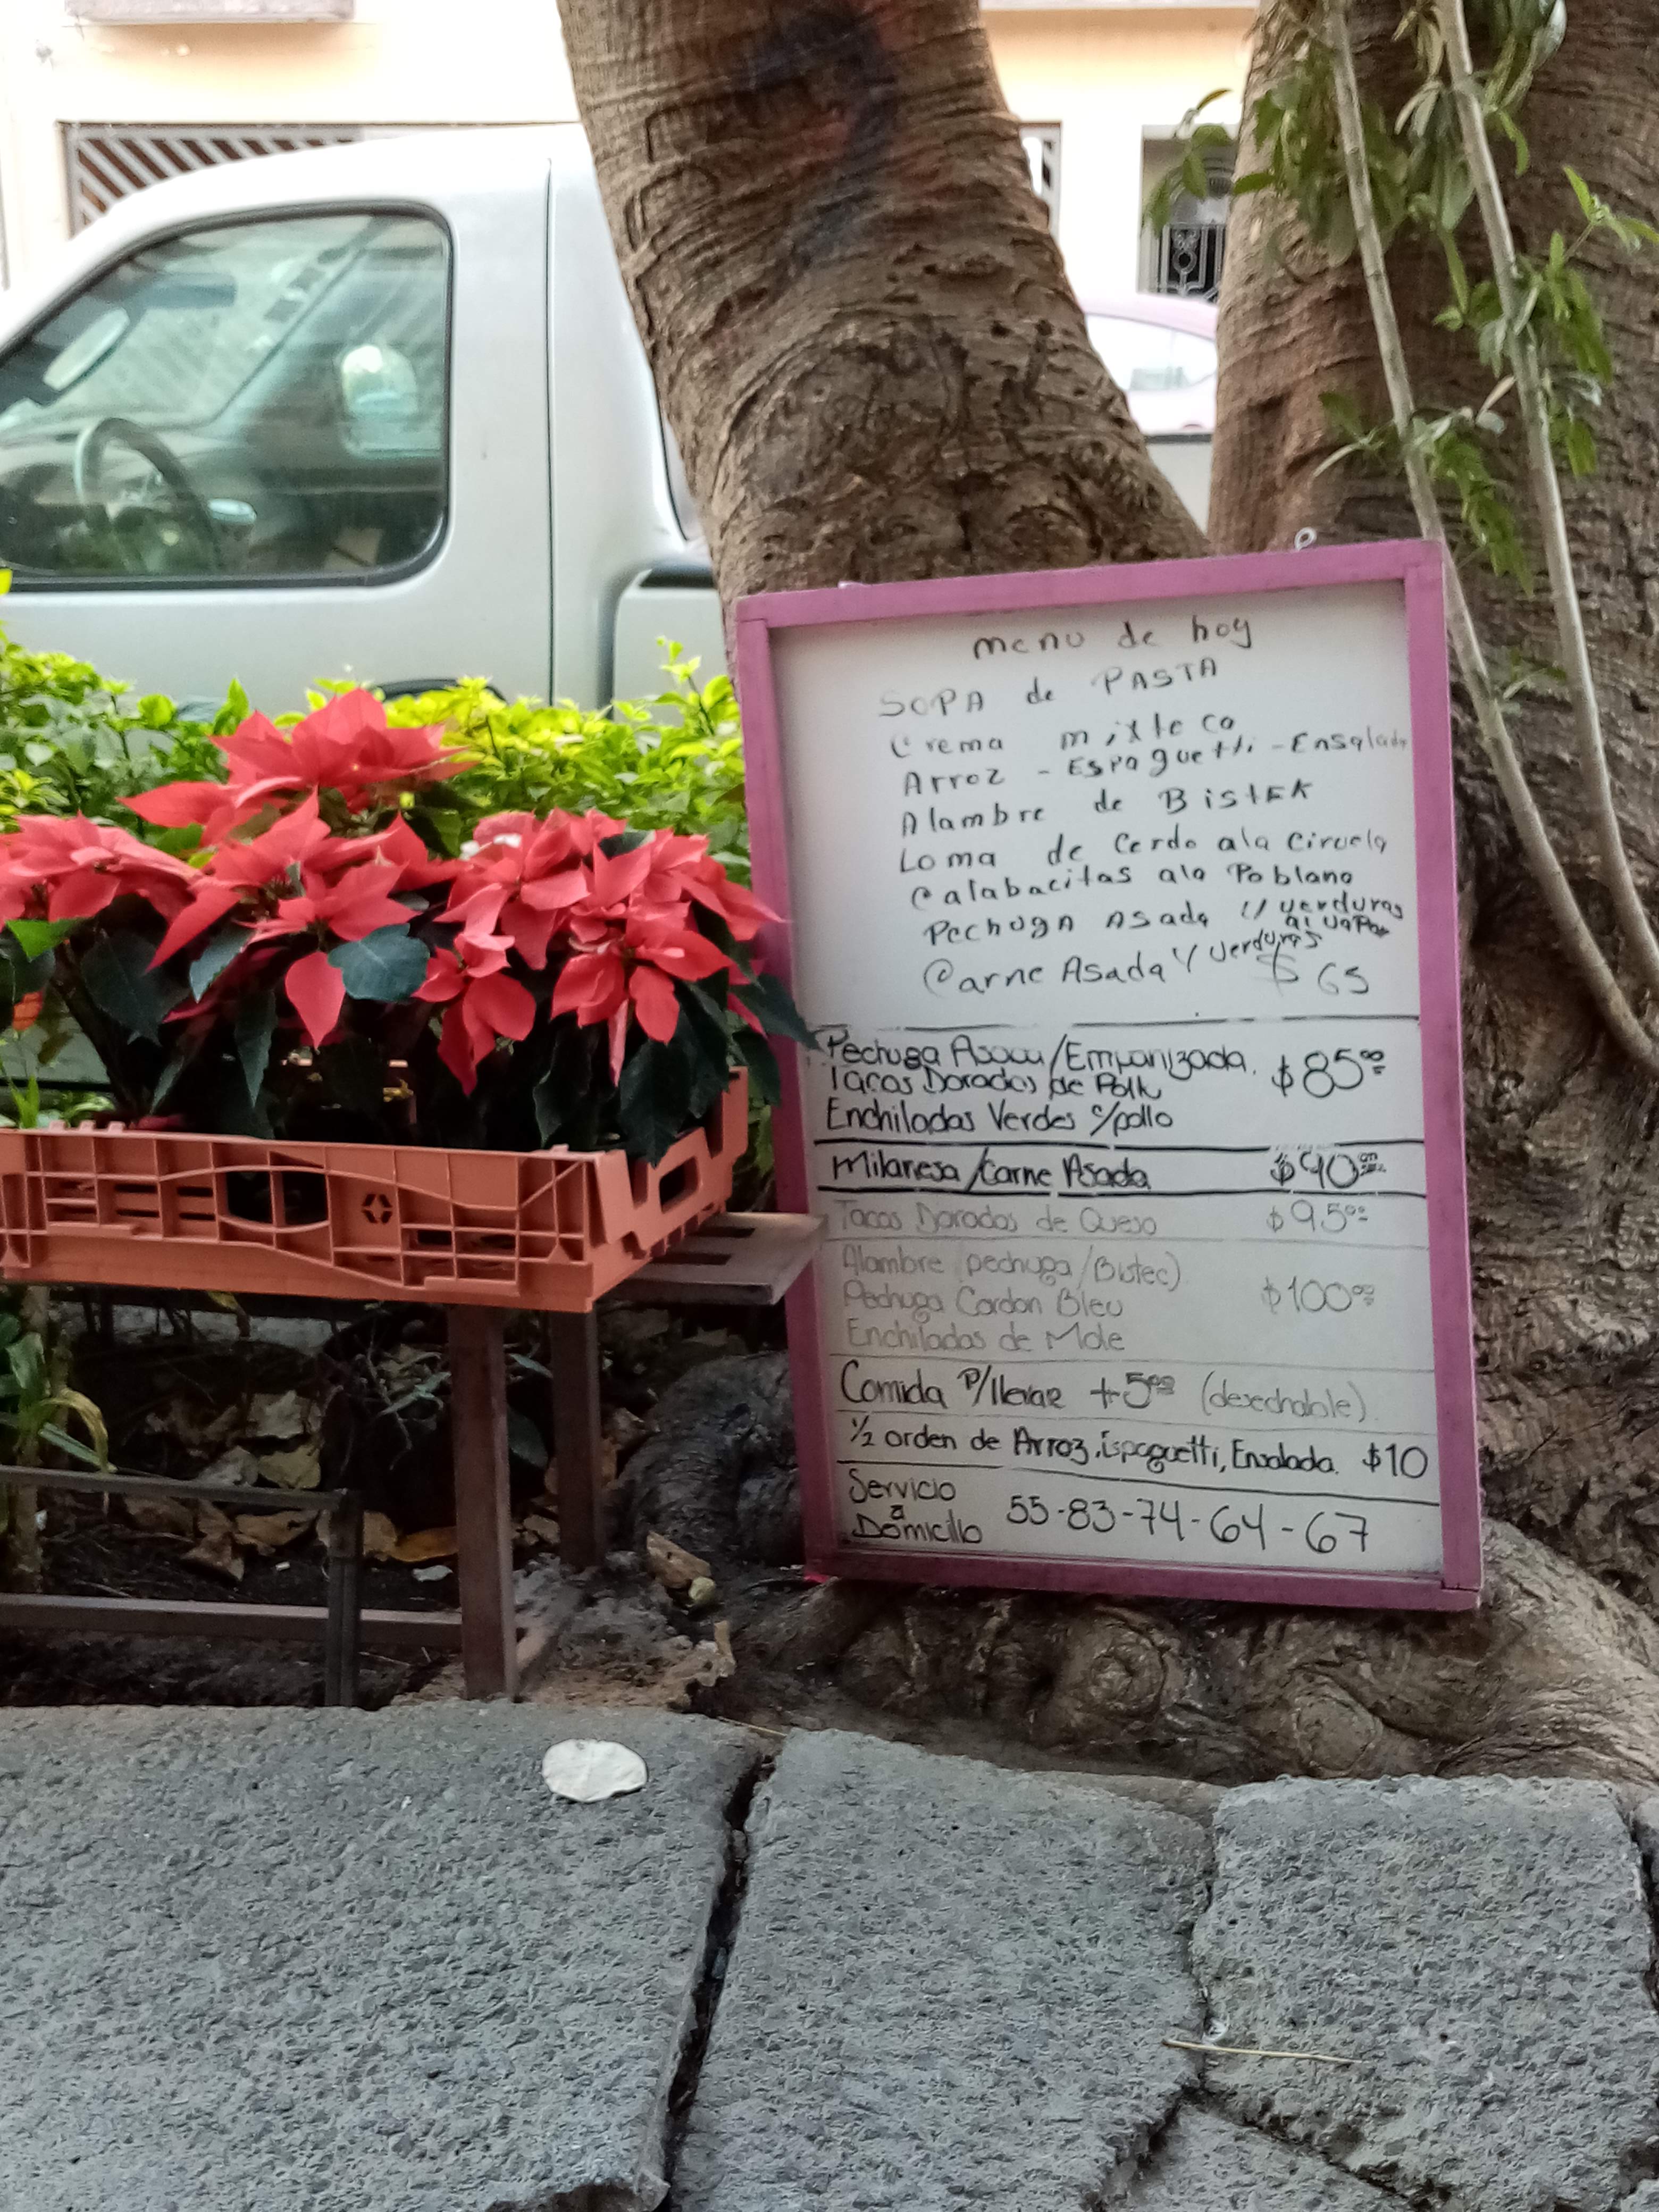 menu de hoy
SOPA de PASTA
Crema mixteca
Arroz - Espaguetti - Ensalada
Alambre de BistEK
Loma de Cerdo ala Ciruela
Calabacitas ala Poblana
Pechuga Asada c/ verduras
al vapor
Carne Asada c/ verduras
$ 65
Pechuga Asada/Empanizada. $85.00
Tacos Dorados de Pollo
Enchiladas Verdes c/pollo
Milanesa/Carne Asada $90.00
Tacos Dorados de Queso $95.00
Alambre (pechuga/Bistec)
Pechuga Cordon Bleu $100.00
Enchiladas de Mole
Comida P/llevar +5.00 (desechable)
1/2 orden de Arroz, Espaguetti, Ensalada. $10
Servicio
a
Domicilio 55-83-74-64-67